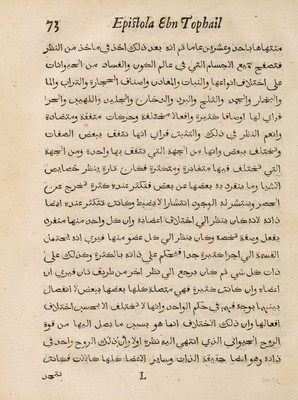 73 Epistola Ebn Tophail
منتهاها باحد وعشرين عاما ثم انه بعد ذلك اخذ في ماخذ من النظر
فتصفح جميع الاجسام التي في عالم الكون والفساد من الحيوانات
على اختلاف انواعها والنبات والمعادن واصناف الحجارة والتراب والما
والبخار والجمد والثلج والبرد والدخان والجليد واللهيب والحر
فراي لها اوصافا كثيرة وافعالا مختلفة وحركات متفقة ومتضادة
وانعم النظر في ذلك والتثبت فراي انها تتفق ببعض الصفات
وتختلف ببعض وانها من الجهة التي تتفق بها واحدة ومن الجهة
التي تختلف فيها متغايرة ومتكثرة فكان تارة ينظر خصايص
الاشيا وما ينفرد به بعضها عن بعض فتكثر عنده كثرة تخرج عن
الحصر وينتشر له الوجود انتشارا لا يضبط وكانت تتكثر عنده ايضا
ذاته لانه كان ينظر الي اختلاف اعضايه وان كل واحد منها منفرد
بفعل وصفة تخصه وكان ينظر الي كل عضو منها فيري انه يحتمل
القسمة الي اجزا كثيرة جدا فيحكم علي ذاته بالكثرة وكذلك علي
ذات كل شي ثم كان يرجع الي نظر اخر من طريف ثان فيري ان
اعضاه وان كانت كثيرة فهي متصلة كلها بعضها ببعض لا انفصال
بينها بوجه فهي في حكم الواحد وانها لا تختلف الا بحسب اختلاف
افعالها وان ذلك الاختلاف انما هو بسبب ما يصل اليها من قوة
الروح الحيواني الذي انتهي اليه نظره اولا وان ذلك الروح واحد في
ذاته وهو ايضا حقيقة الذات وساير الاعضا كلها كالالات فكانت
L تتحد